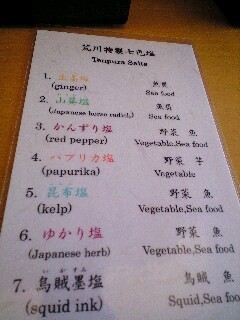 荒川特製七色塩
Tenpura Salts
1. 生姜塩 魚貝
(ginger) Sea food
2. 山葵塩 魚貝
(Japanese horse radich) Sea food
3. かんずり塩 野菜 魚
(red pepper) Vegetable,Sea food
4. パプリカ塩 野菜 芋
(papurika) Vegetable
5. 昆布塩 野菜 魚
(kelp) Vegetable,Sea food
6. ゆかり塩 野菜 魚
(Japanese herb) Vegetable,Sea food
いかすみ
7. 烏賊墨塩 烏賊 魚
(squid ink) Squid,Sea food